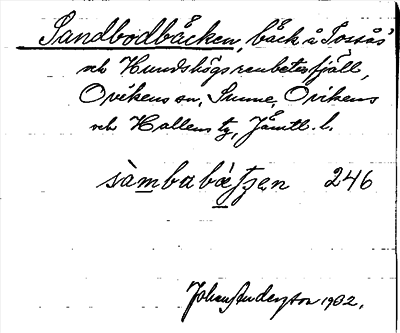 Sandbodbäcken, bäck å Torsås'
och Hundshögs renbetesfjäll,
Ovikens sn, Sunne, Ovikens
och Hallens tg, Jämtl. l.
sàmbabætʒen 246
Johan Anderzon 1932.